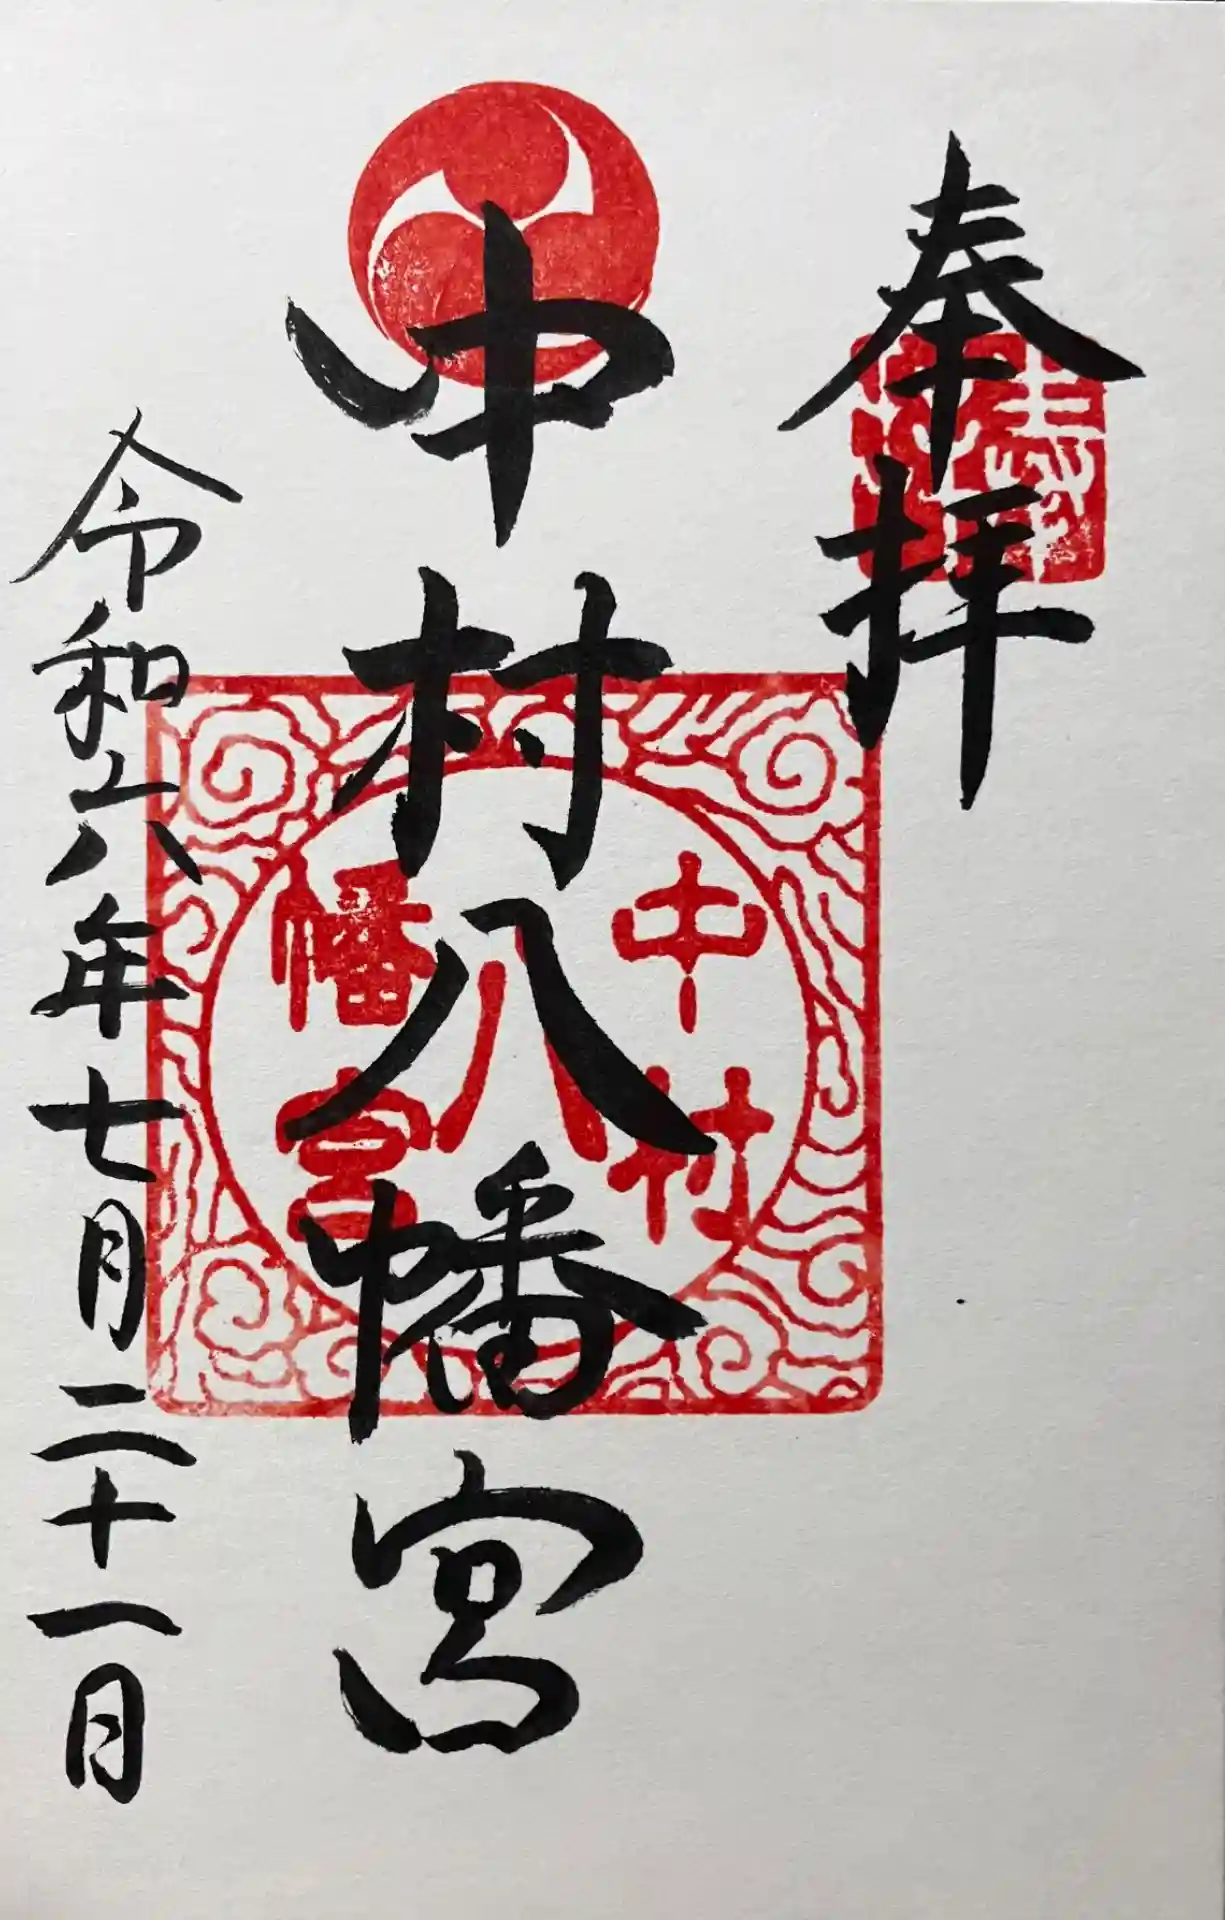 奉拝
中村八幡宮
中村八幡宮
令和六年七月二十一日